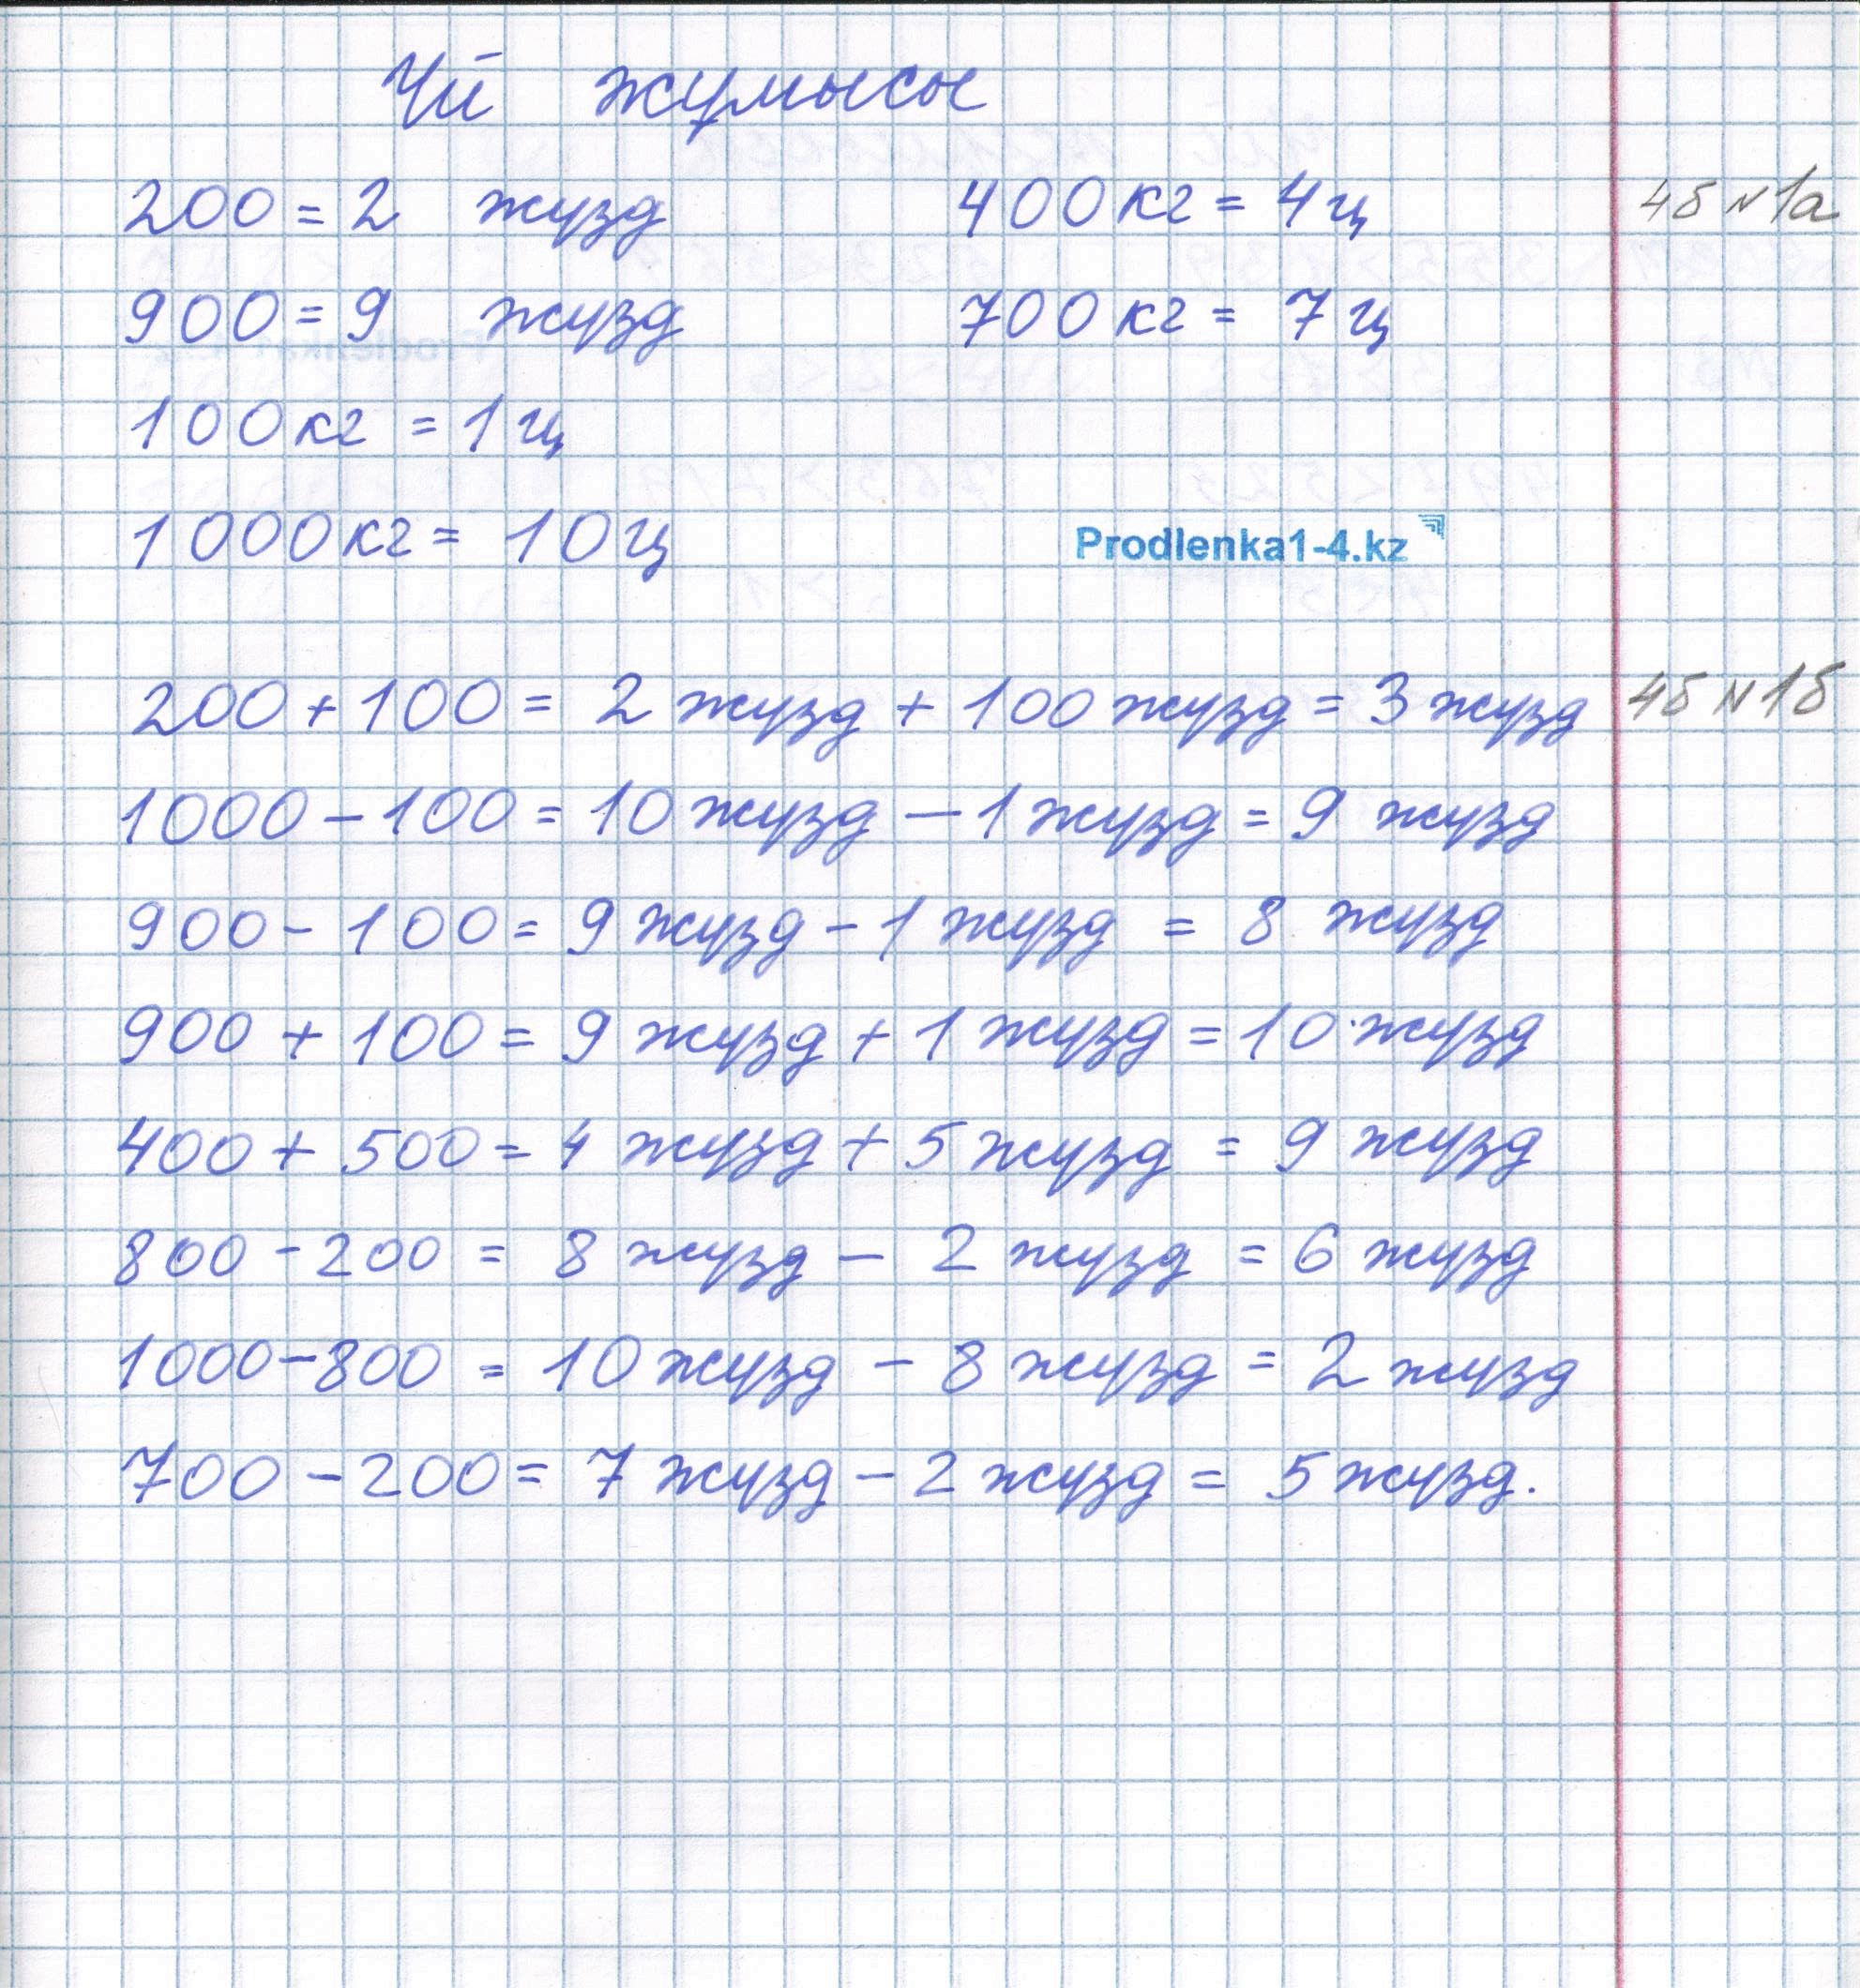 Үй жұмысы
200 = 2 жүзд 400 кг = 4 ц 4б №1а
900 = 9 жүзд 700 кг = 7 ц
100 кг = 1 ц
1000 кг = 10 ц
Prodlenka1-4.kz
200 + 100 = 2 жүзд + 100 жүзд = 3 жүзд 4б №1б
1000 - 100 = 10 жүзд - 1 жүзд = 9 жүзд
900 - 100 = 9 жүзд - 1 жүзд = 8 жүзд
900 + 100 = 9 жүзд + 1 жүзд = 10 жүзд
400 + 500 = 4 жүзд + 5 жүзд = 9 жүзд
800 - 200 = 8 жүзд - 2 жүзд = 6 жүзд
1000 - 800 = 10 жүзд - 8 жүзд = 2 жүзд
700 - 200 = 7 жүзд - 2 жүзд = 5 жүзд.